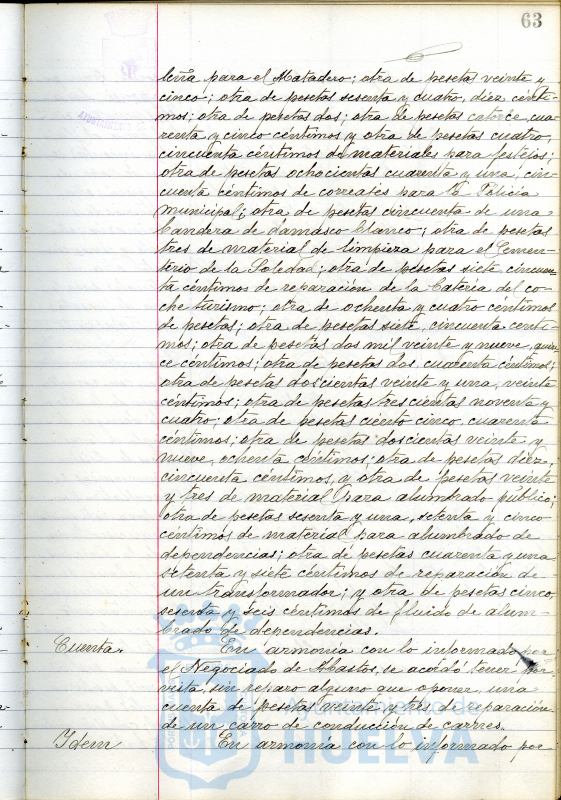 63
leña para el Matadero; otra de pesetas veinte y
cinco; otra de pesetas sesenta y cuatro, diez cénti-
mos; otra de pesetas dos; otra de pesetas catorce, cua-
renta y cinco céntimos y otra de pesetas cuatro,
cincuenta céntimos de materiales para festejos;
otra de pesetas ochocientas cuarenta y una, cin-
cuenta céntimos de correajes para la Policía
municipal; otra de pesetas cincuenta de una
bandera de damasco blanco; otra de pesetas
tres de material de limpieza para el Cemen-
terio de la Soledad; otra de pesetas siete cincuen-
ta céntimos de reparación de la batería del co-
che turismo; otra de ochenta y cuatro céntimos
de pesetas; otra de pesetas siete, cincuenta cénti-
mos; otra de pesetas dos mil veinte y nueve, quin-
ce céntimos; otra de pesetas dos cuarenta céntimos;
otra de pesetas doscientas veinte y una, veinte
céntimos; otra de pesetas trescientas noventa y
cuatro; otra de pesetas ciento cinco, cuarenta
céntimos; otra de pesetas doscientas veinte y
nueve, ochenta céntimos; otra de pesetas diez,
cincuenta céntimos, y otra de pesetas veinte
y tres de material para alumbrado público;
otra de pesetas sesenta y una, setenta y cinco
céntimos de material para alumbrado de
dependencias; otra de pesetas cuarenta y una
setenta y siete céntimos de reparación de
un transformador; y otra de pesetas cinco,
sesenta y seis céntimos de fluido de alum-
brado de dependencias.
Cuenta. En armonía con lo informado por
el Negociado de Abastos, se acordó tener por
vista, sin reparo alguno que oponer, una
cuenta de pesetas veinte y tres de reparación
de un carro de conducción de carnes.
Idem En armonía con lo informado por
Ayuntamiento de
HUELVA